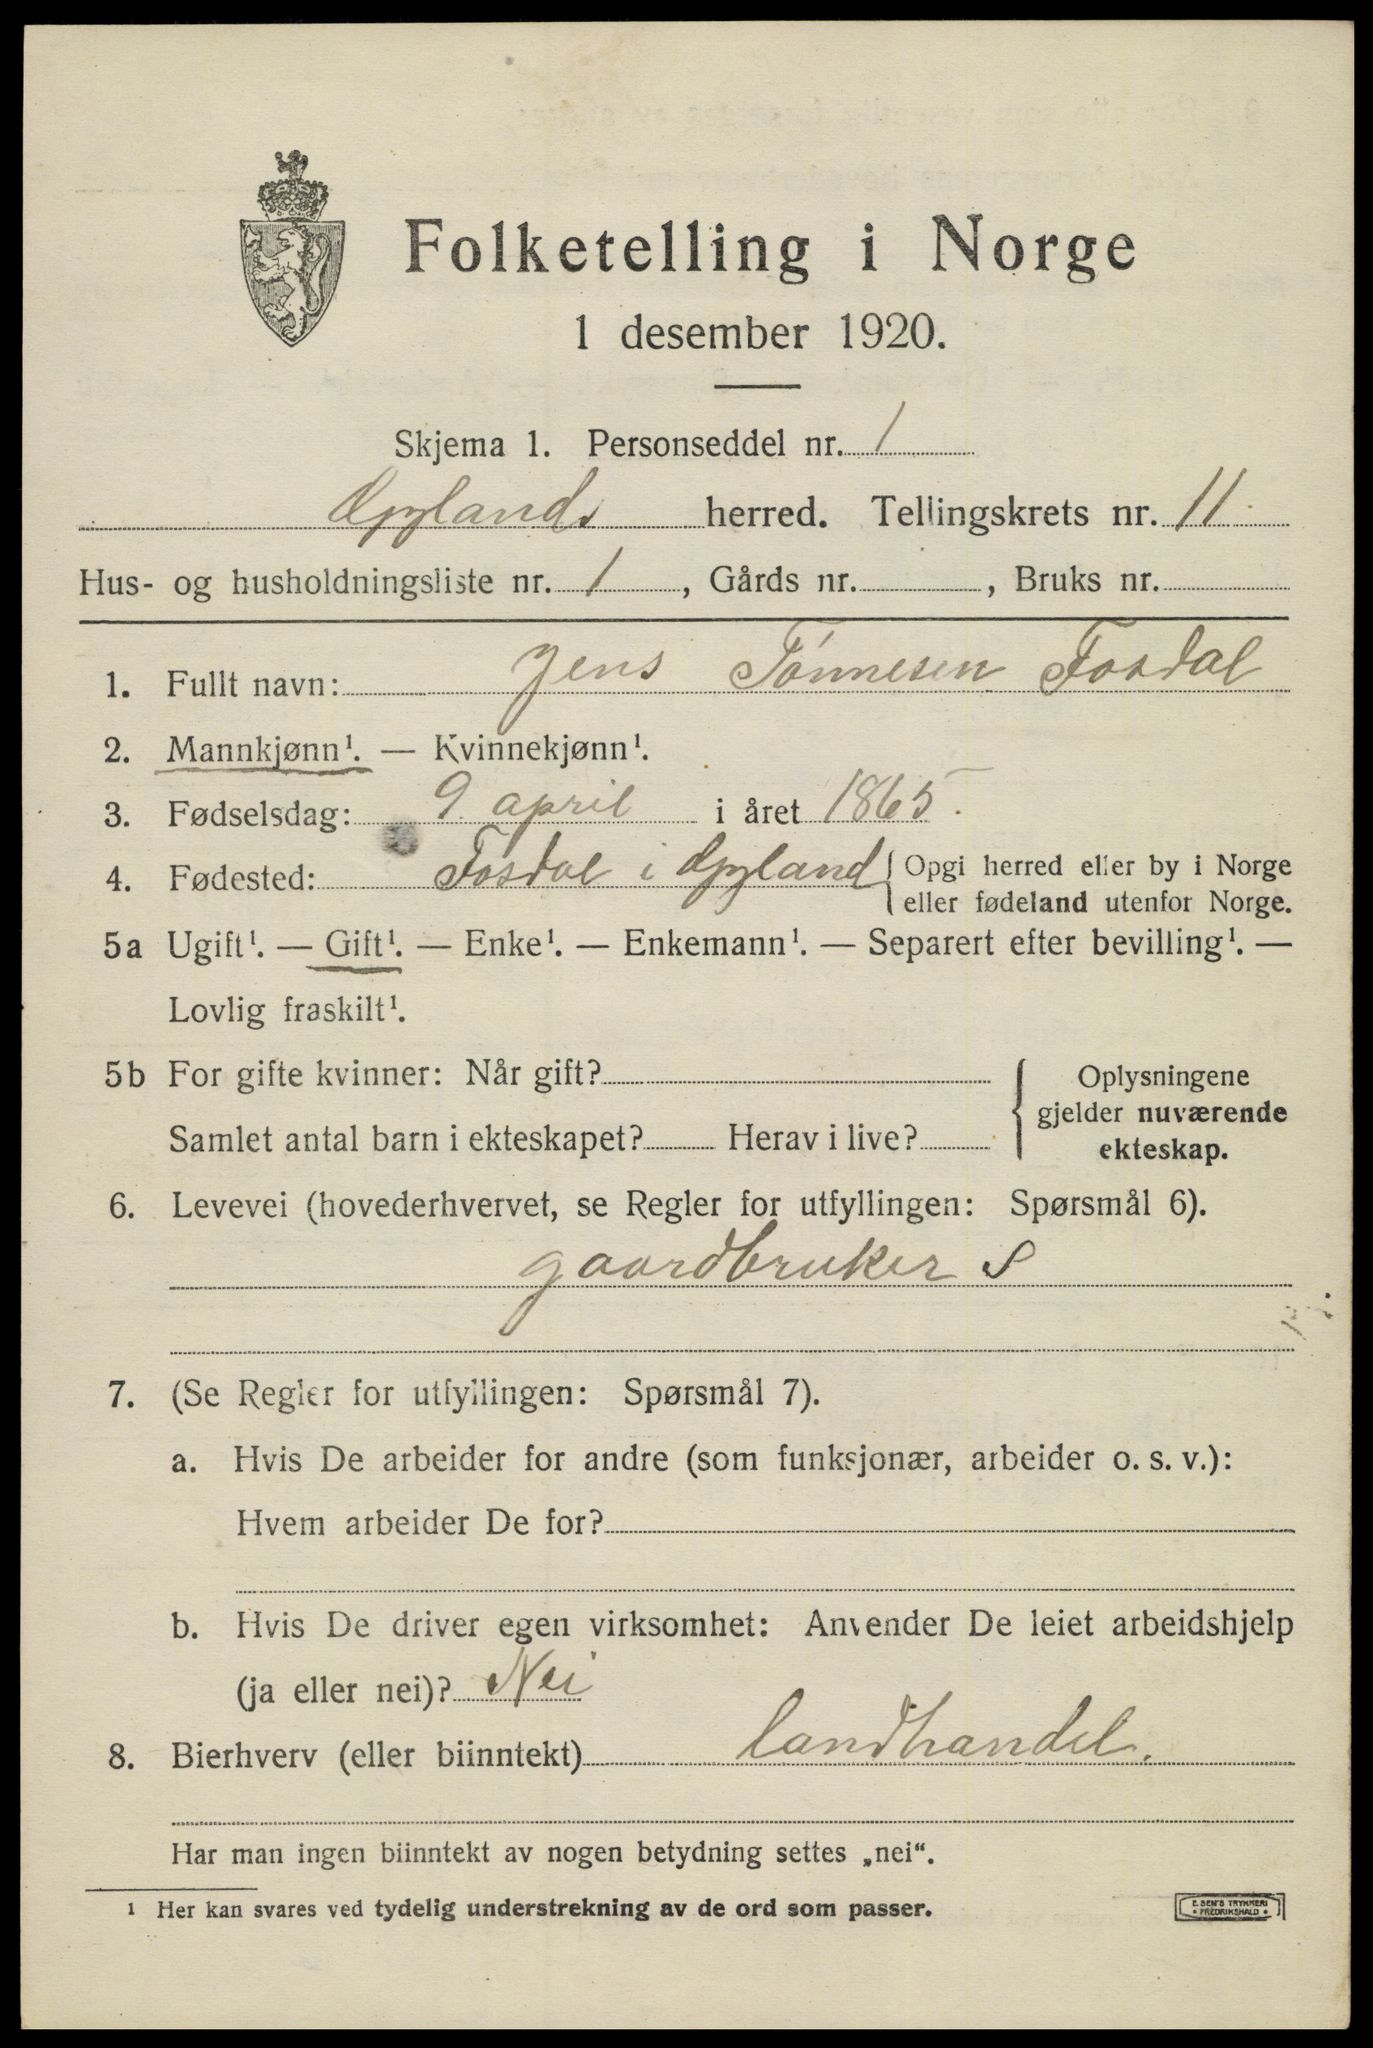 Folketelling i Norge
1 desember 1920.
Skjema 1. Personseddel nr. 1
Gylands herred. Tellingskrets nr. 11
Hus- og husholdningsliste nr. 1, Gårds nr. , Bruks nr.
1. Fullt navn: Jens Tónnesen Fosdal
2. Mannkjønn¹. — Kvinnekjønn¹.
3. Fødselsdag: 9 april i året 1865
4. Fødested: Fosdal i Gyland { Opgi herred eller by i Norge
eller fødeland utenfor Norge.
5a Ugift¹. — Gift¹. — Enke¹. — Enkemann¹. — Separert efter bevilling¹. —
Lovlig fraskilt¹.
5b For gifte kvinner: Når gift? { Oplysningene
gjelder nuværende
Samlet antal barn i ekteskapet? Herav i live?
ekteskap.
6. Levevei (hovederhvervet, se Regler for utfyllingen: Spørsmål 6).
gaardbruker S
7. (Se Regler for utfyllingen: Spørsmål 7).
a. Hvis De arbeider for andre (som funksjonær, arbeider o. s. v.):
Hvem arbeider De for?
b. Hvis De driver egen virksomhet: Anvender De leiet arbeidshjelp
(ja eller nei)? Nei
8. Bierhverv (eller biinntekt) landhandel.
Har man ingen biinntekt av nogen betydning settes „nei“.
¹ Her kan svares ved tydelig understrekning av de ord som passer.
E. SEM'S TRYKKERI
• FREDRIKSHALD •